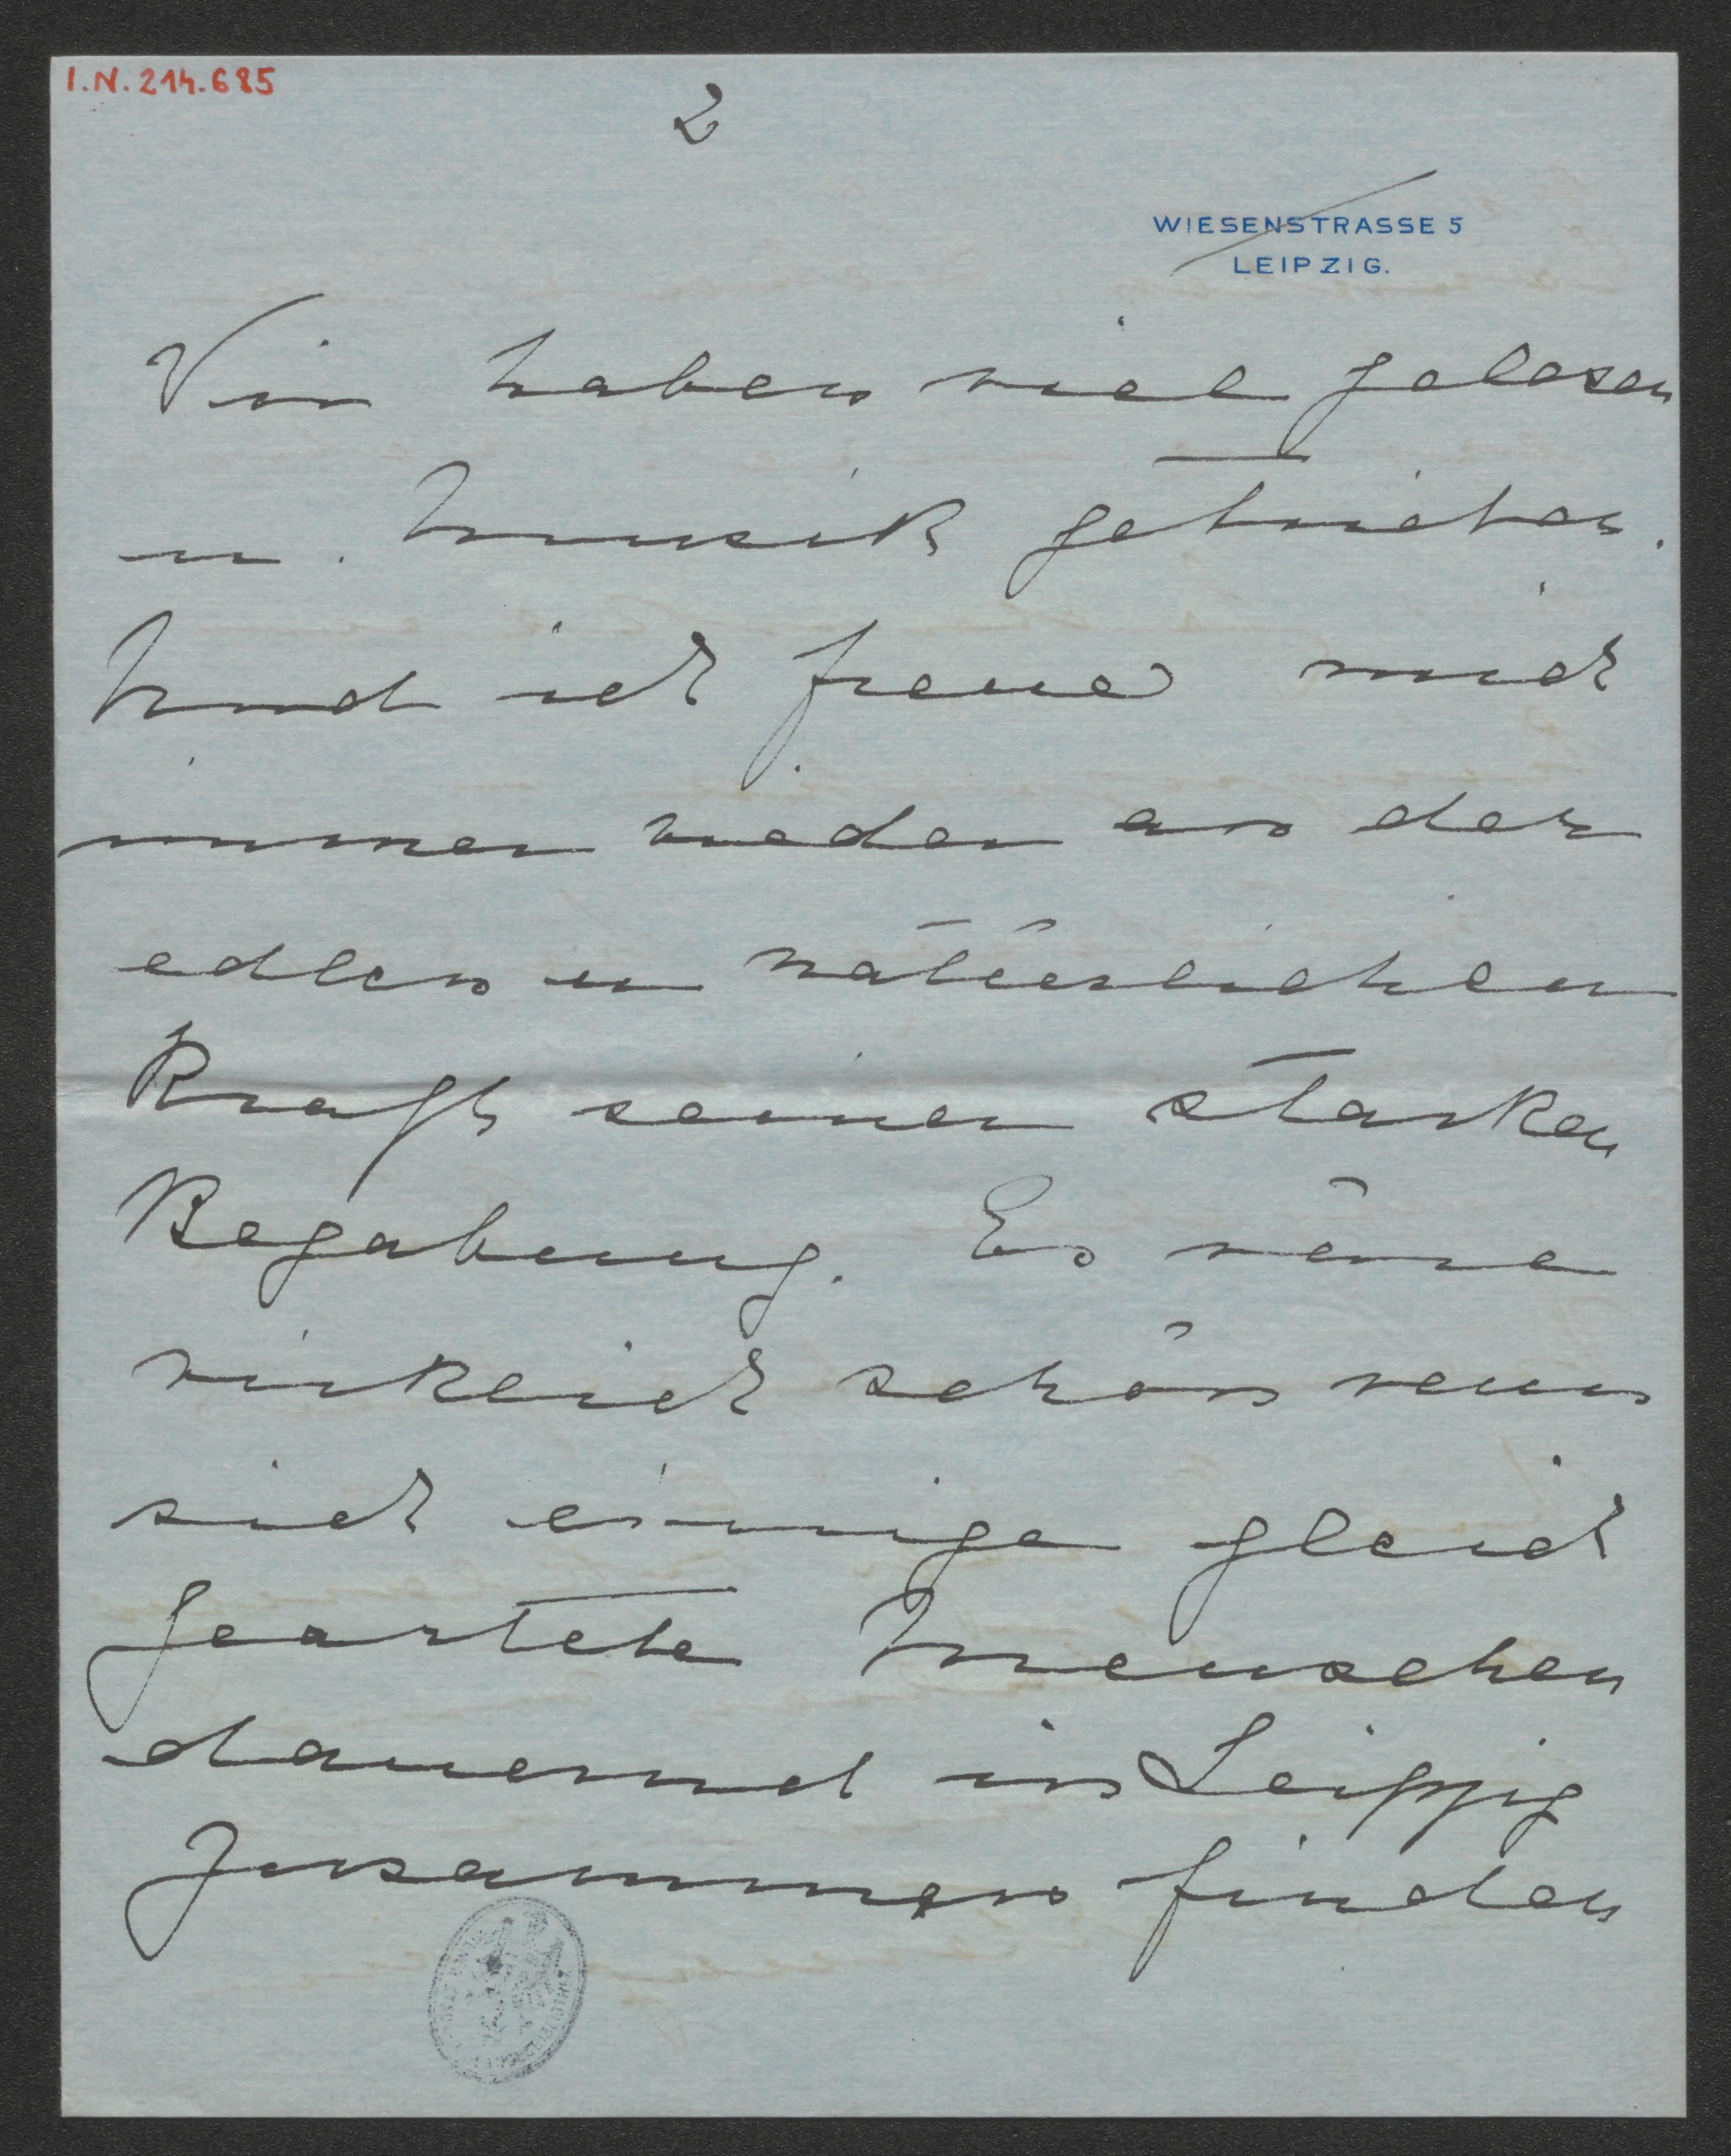 I.N. 214.685
2
WIESENSTRASSE 5
LEIPZIG.
Wir haben viel gelesen
u. Musik getrieben.
Und ich freue mich
immer wieder an der
edlen u natürlichen
Kraft seiner starken
Begabung. Es wäre
wirklich schön wenn
sich einige gleich
geartete Menschen
dauernd in Leipzig
zusammen finden